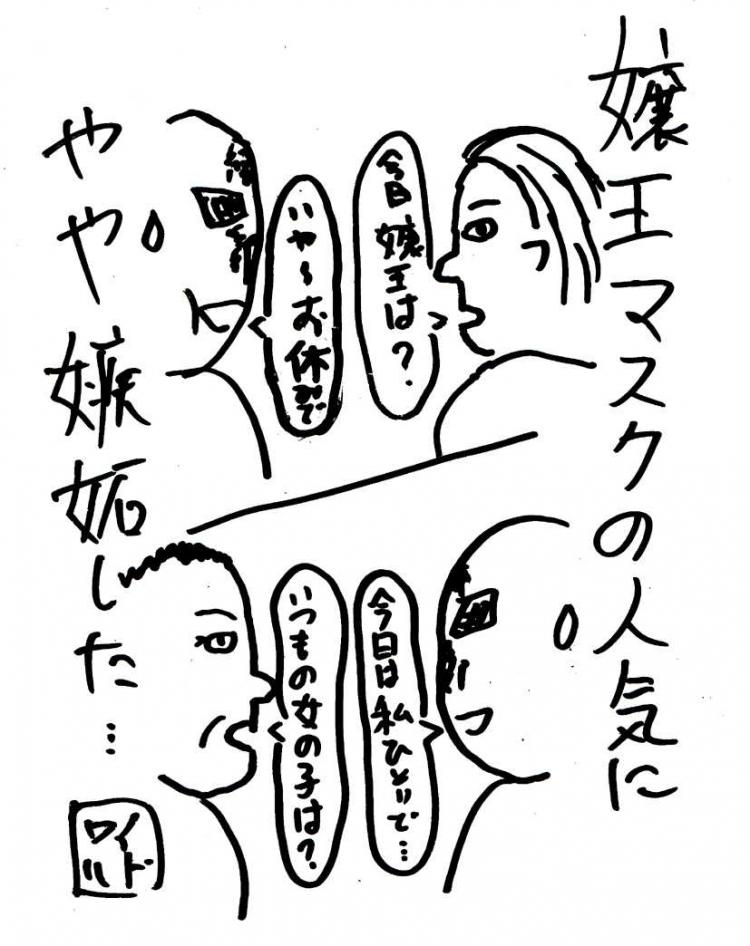 嬢王マスクの人気に
今日嬢王は?
いや〜お休みで
今日は私ひとりで…
いつもの女の子は?
やや嫉妬した…
ワイ
ルド